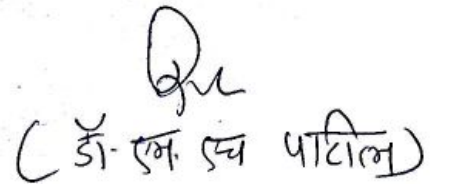 (डॉ. एम. एच पाटील)